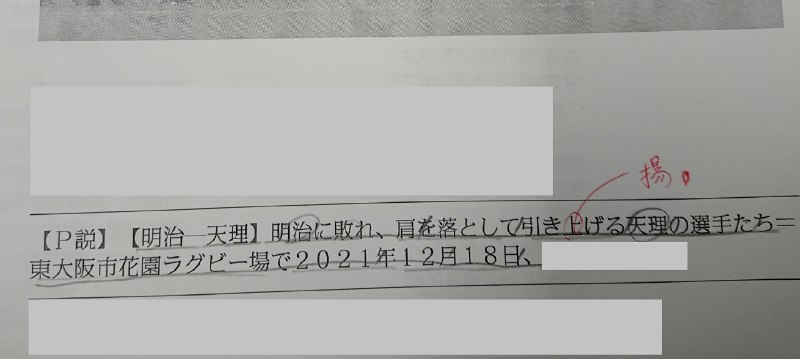 揚
【Ｐ説】【明治　天理】明治に敗れ、肩を落として引き上げる天理の選手たち＝
東大阪市花園ラグビー場で２０２１年１２月１８日、